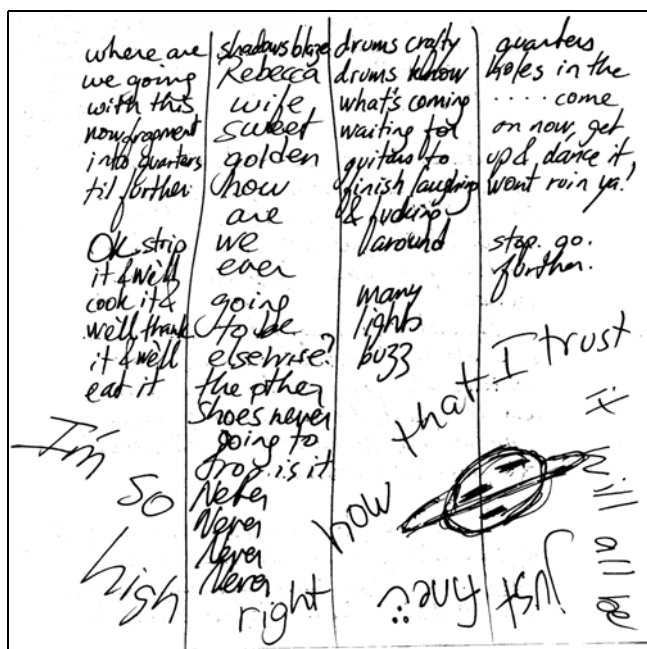 where are
we going
with this
now fragment
into quarters
til further
OK. strip
it & we'll
cook it &
we'll thank
it & we'll
eat it
shadows blaze
Rebecca
wife
sweet
golden
how
are
we
ever
going
to be
elsewise?
the pther
shoes never
going to
drop is it
Never
Never
Never
Never
drums crafty
drums know
what's coming
waiting for
guitars to
finish laughing
& fucking
around
many
lights
buzz
quarters
holes in the
..... come
on now, get
up & dance it
wont ruin ya!
stop. go.
further.
I'm
so
high
right
now
that I trust
it will all be
just fine